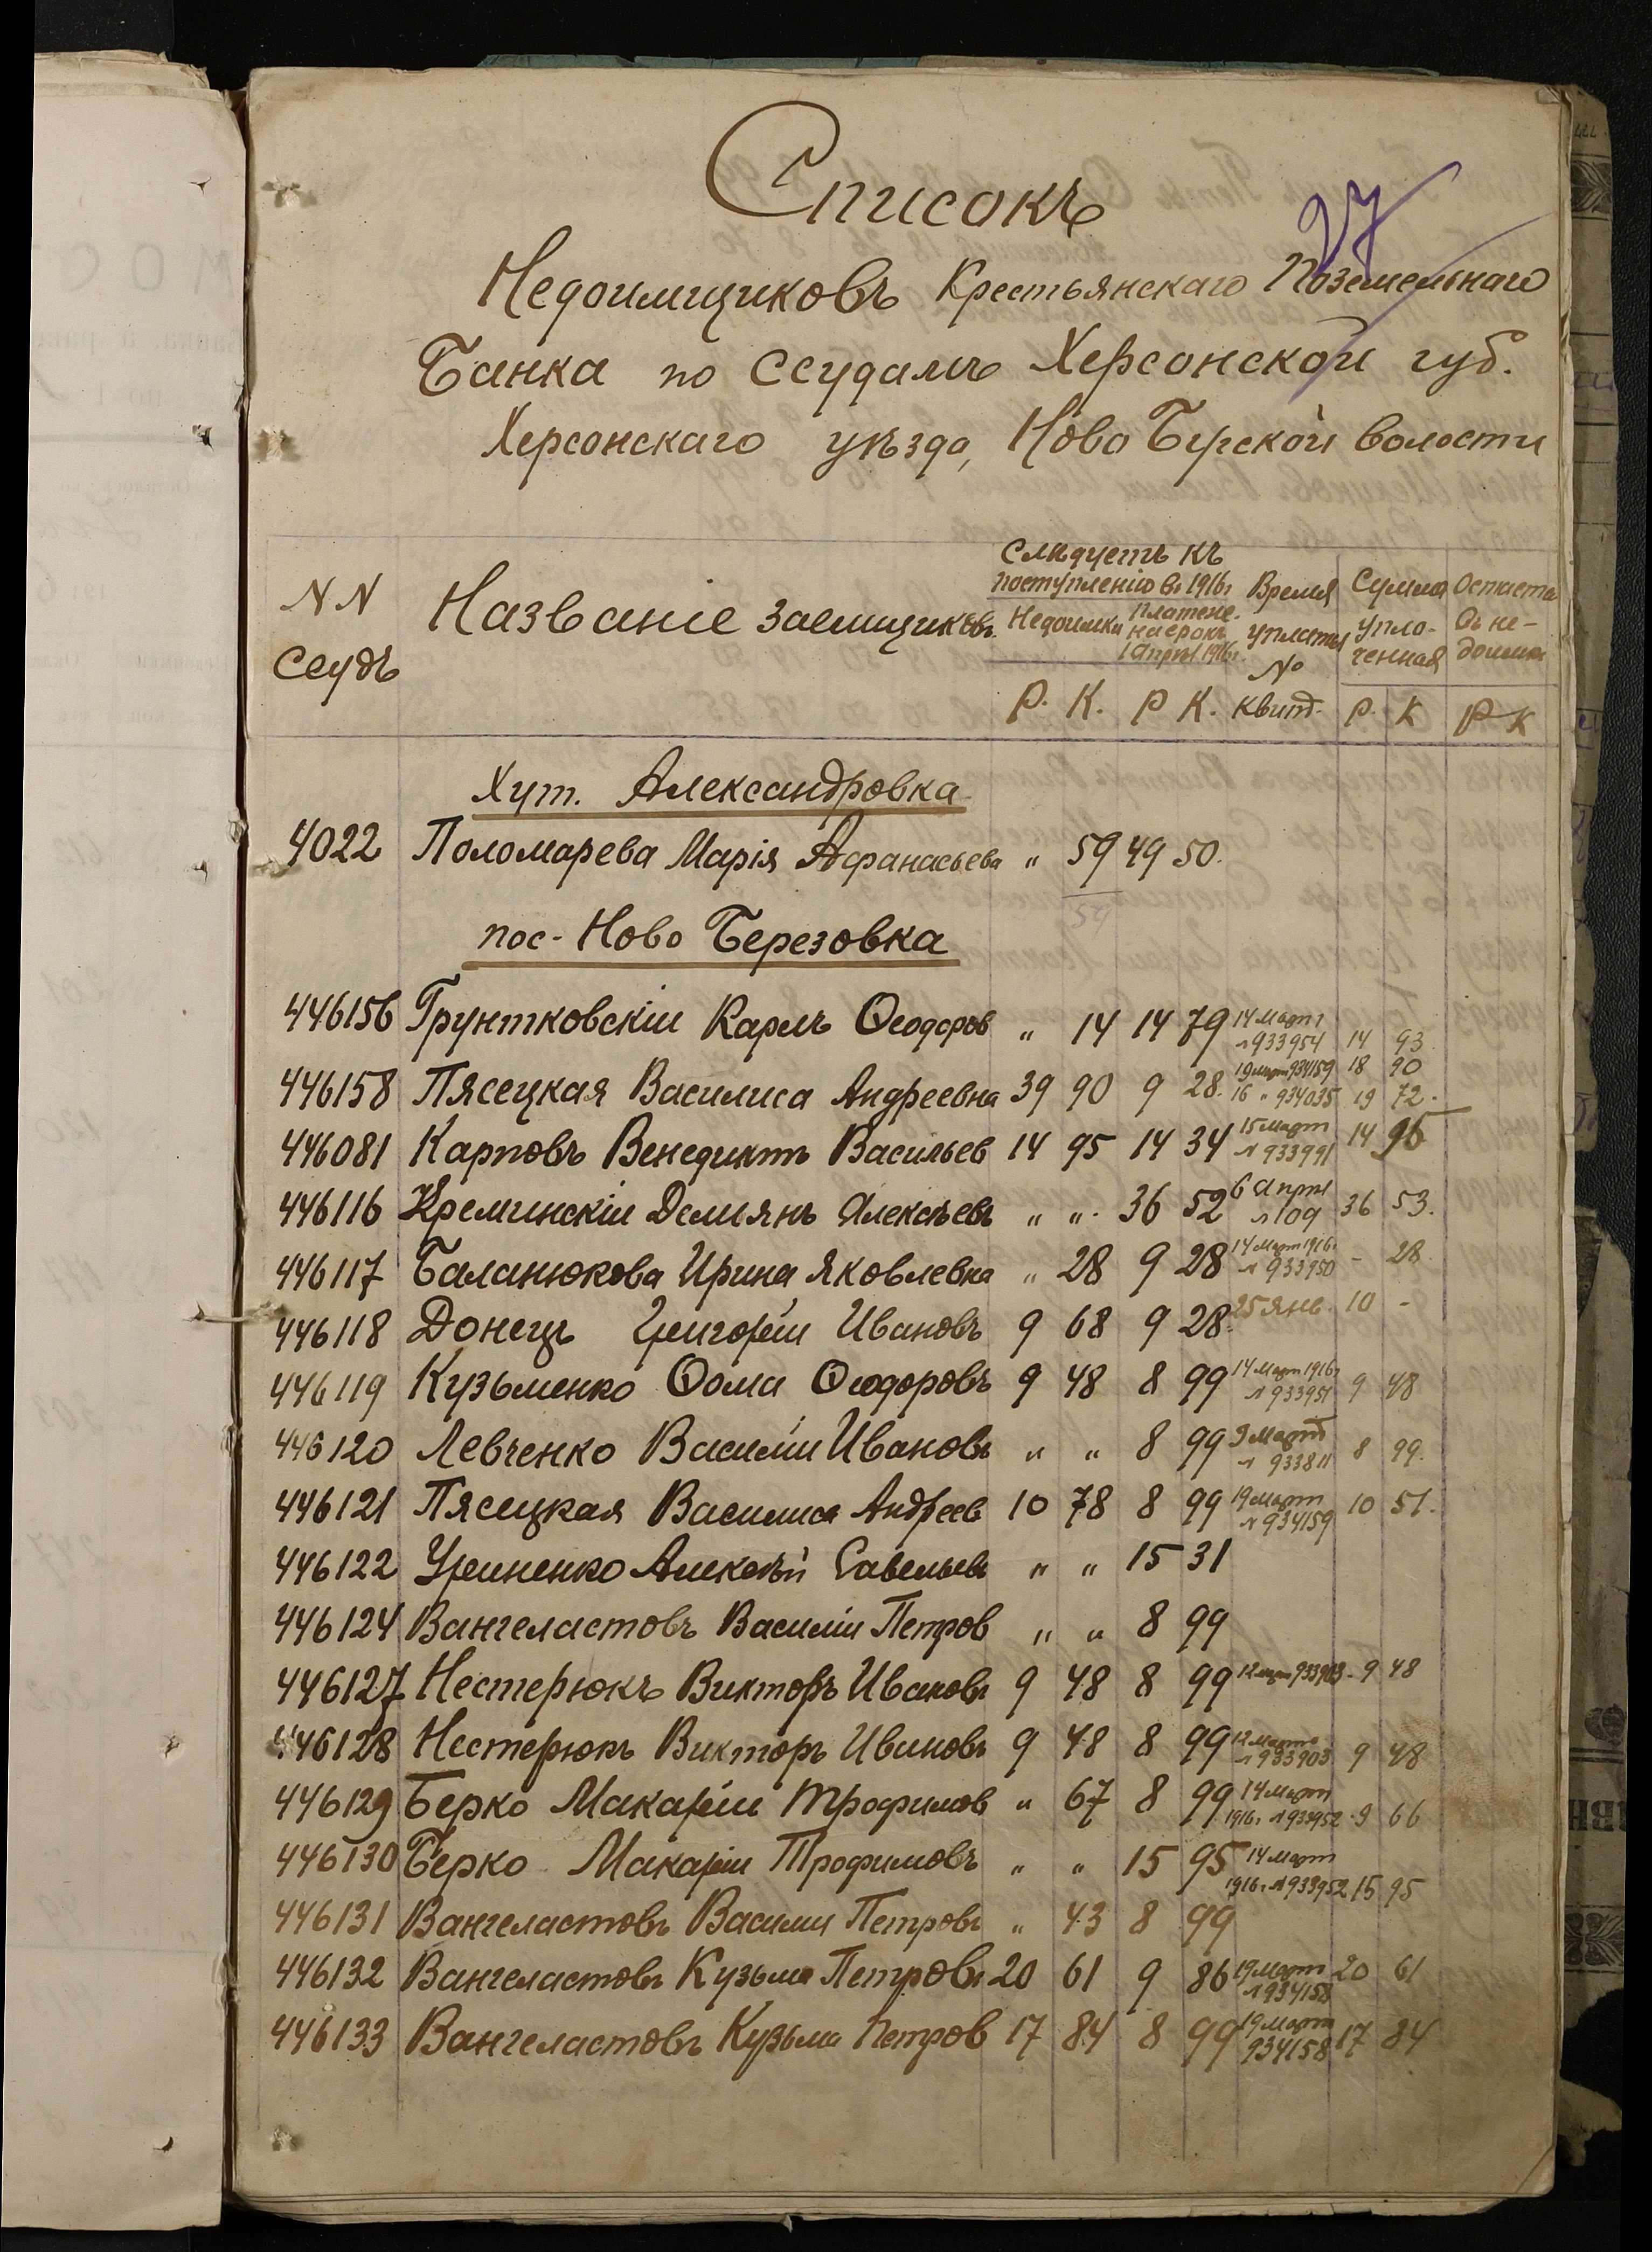 27
Списокъ
Недоимщиковъ Крестьянскаго Поземельнаго
Банка по ссудамъ Херсонской губ.
Херсонскаго уѣзда, Ново Бугской волости
NN ссудъ
Названіе заемщиковъ
Слѣдуетъ къ поступленію въ 1916г
Недоимки
Платеж. на срокъ 1 Апрѣл 1916г.
Время уплаты № квит.
Сумма уплоченная
Остается въ недоимкѣ
Р. К. Р К. Р. К Р К
Хут. Александровка
4022 Поломарева Марія Афанасьева " 59 49 50.
59
пос- Ново Березовка
446156 Грунтковскій Карлъ Ѳеодоров " 14 14 79 14 Март № 933954 14 93
446158 Пясецкая Василиса Андреевна 39 90 9 28. 19 март 934159 18 90
16 " 934035 19 72.
446081 Карповъ Венедиктъ Васильев 14 95 14 34 15 Март № 933991 14 95
446116 Креминскій Демьянъ Алексѣевъ " " 36 52 6 Апрл № 109 36 53.
446117 Баланюкова Ирина Яковлевна " 28 9 28 14 Март 1916г № 933950 - 28
446118 Донецъ Григорій Ивановъ 9 68 9 28. 25 Янв. 10 -
446119 Кузьменко Ѳома Ѳеодоровъ 9 48 8 99 14 Март 1916г № 933951 9 48
446120 Левченко Василій Ивановъ " " 8 99 9 Март № 933811 8 99.
446121 Пясецкая Василиса Андреев 10 78 8 99 19 Март № 934159 10 51.
446122 Алексѣй Савельевъ " " 15 31
446124 Вангеластовъ Василій Петров " " 8 99
446127 Нестерюкъ Викторъ Ивановъ 9 48 8 99 12 март 933903 - 9 48
446128 Нестерюкъ Викторъ Ивановъ 9 48 8 99 12 Марта № 933903 9 48
446129 Берко Макарій Трофимов " 67 8 99 14 Март 1916г. № 933952 9 66
446130 Берко Макарій Трофимовъ " " 15 95 14 Март 1916г. № 933952 15 95
446131 Вангеластовъ Василій Петровъ " 43 8 99
446132 Вангеластовъ Кузьма Петровъ 20 61 9 86 19 Март № 934158 20 61
446133 Вангеластовъ Кузьма Петров 17 84 8 99 19 Март 934158 17 84